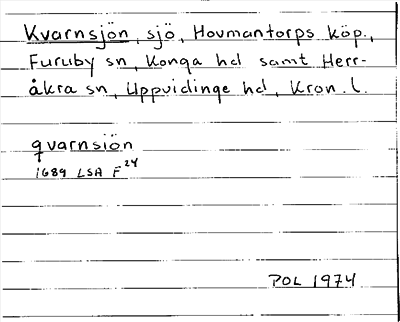 Kvarnsjön, sjö, Hovmantorps köp.,
Furuby sn, Konga hd samt Herr-
åkra sn, Uppvidinge hd, Kron. l.
qvarnsiön
1689 LSA F 24
POL 1974